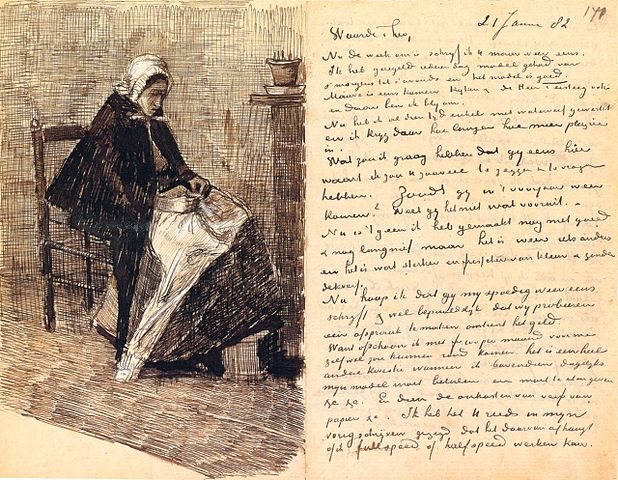 21 Janu 82
Waarde Theo,
Nu de week om is schrijf ik U maar weer eens.
Ik heb geregeld iederen dag model gehad van
s'morgens tot s'avonds en het model is goed
Mauve is eens komen kijken & de Heer Tersteeg ook
en daarom ben ik blij om.
Nu heb ik al den tijd enkel met waterverf gewerkt
en ik krijg daar hoe langer hoe meer plezier
in.
Wat zou ik graag hebben dat gij eens hier
waart ik zou U zooveel te zeggen & te vragen
hebben. Zoudt gij in 't voorjaar weer
komen? Weet gij het niet wat vooruit.
Nu is 't geen ik heb gemaakt nog niet goed
& nog lang niet maar het is weer iets anders
en het is wat sterker en frisscher van kleur & zonder
dekverf.
Nu hoop ik dat gij mij spoedig weer eens
schrijft & wel bepaaldelijk dat wij probeeren
een afspraak te maken omtrent het geld.
Want ofschoon ik met fr 100 per maand voor me
zelf wel zou kunnen rond komen het is een heel
andere kwestie wanneer ik bovendien dagelijks
mijn model moet betalen en moet te eten geven
&c &c. En dan de onkosten van verf van
papier &c. Ik heb het U reeds in mijn
vorig schrijven gezegd dat het daarvan afhangt
of ik full speed of half speed werken kan.